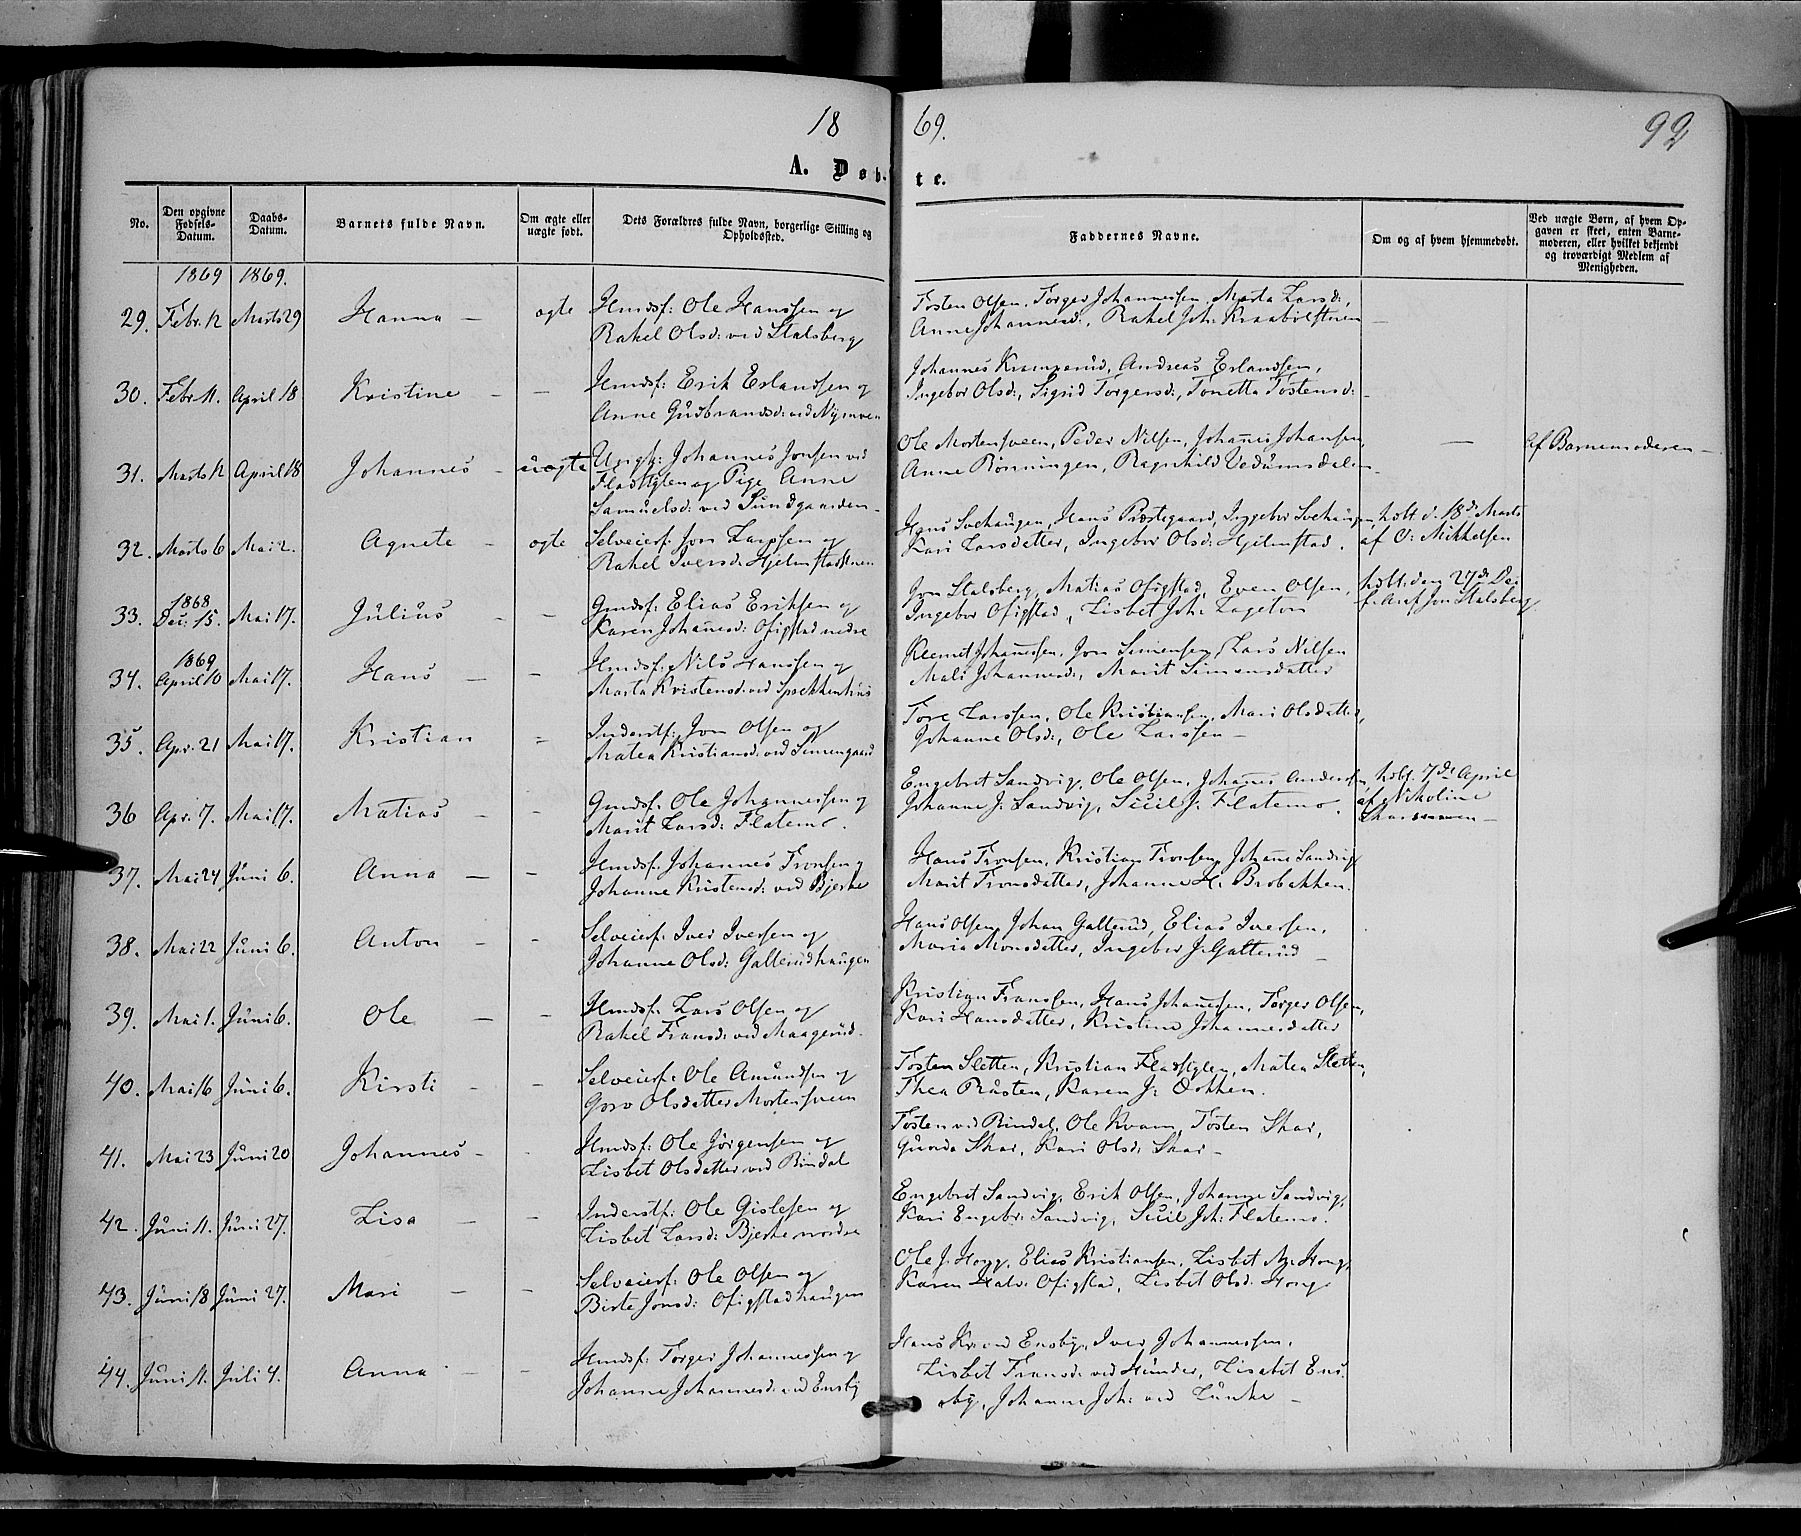 1869.
92
A. Døbte.
No.
Den opgivne Fødsels-Datum.
Daabs-Datum.
Barnets fulde Navn.
Om ægte eller uægte født.
Dets Forældres fulde Navn, borgerlige Stilling og Opholdssted.
Faddernes Navne.
Om og af hvem hjemmedøbt.
Ved uægte Børn, af hvem Opgaven er skeet, enten Barnemoderen, eller hvilket bekjendt og troværdigt Medlem af Menigheden.
1869 1869.
29. Febr. 12 Marts 29 Hanna – ægte Hmdsf: Ole Hanssen og
Rakel Olsd: ved Stalsberg
Tosten Olsen, Torger Johannessen, Marta Larsd:,
Anne Johannesd:, Rakel Joh: –
30. Febr. 11. April 18 Kristine – – Hmdsf: Erik Erlandsen og
Anne Gudbrandsd: ved
Johannes Andreas Erlandsen,
Ingebor Olsd:, Sigrid Torgersd:, Tonetta Tostensd: –
31. Marts 12 April 18 Johannes – uægte Ungk: Johannes Jonsen ved
Fladstylen og Pige Anne
Samuelsd: ved Sundgaarden –
Ole Mortensveen, Peder Nilsen, Johanes Johansen,
Anne Rønningen, Ragnhild Vedumsdalen –
–
af Barnemoderen –
32. Marts 6 Mai 2. Agnete – ægte Selveierf: Jon Larssen og
Rakel Iversd: Hjelmstadstuen
Hans Svehaugen, Hans Prestegaard, Ingebor Svehaugen,
Kari Larsdatter, Ingebor Olsd: Hjelmstad.
hdbt. d. 18de Marts
af O: Mikkelsen
33. 1868 Dec: 15. Mai 17. Julius – – Gmdsf: Elias Eriksen og
Karen Johanesd: Ofigstad nedre
Jon Stalsberg, Matias Ofigstad, Even Olsen,
Ingebor Ofigstad, Lisbet Joh: Lageton
hdbt. den 27de De
f. A. af Jon Stalsberg
34. 1869 April 10 Mai 17. Hans – – Hmdsf: Nils Hanssen og
Marta Kristensd: ved
Klemet Johanessen, Jon Simensen, Lars Nilsen
Mali Johannesd:, Marit Simensdatter
35. Apr. 21 Mai 17. Kristian – Inderstf: Jon Olsen og
Matea Kristiansd: ved Simengaard
Tore Larssen, Ole Kristiansen, Mari Olsdatter,
Johanne Olsd:, Ole Larssen –
36 Apr. 7. Mai 17. Matias – – Gmdsf: Ole Johannessen og
Marit Larsd: Flatemo.
Engebret Sandvig, Ole Olsen, Johanes Andersen,
Johanne J: Sandvig, Sicil J: Flatemo.
hdbt. 7de April
af Nikoline
37. Mai 24 Juni 6. Anna – – Hmdsf: Johannes Tronsen og
Johanne Kristensd: ved Bjerke
Hans Tronsen, Kristian Tronsen, Johane Sandvig
Marit Tronsdatter, Johanne H: Brobakken.
38. Mai 22 Juni 6. Anton – – Selveierf: Iver Iversen og
Johanne Olsd: Gallerudhaugen
Hans Olsen, Johan Gallerud, Elias Iversen,
Maria Monsdatter, Ingebor J: Gallerud –
39. Mai 1. Juni 6. Ole – – Hmdsf: Lars Olsen og
Rakel Fransd: ved Maagerud.
Kristian Franssen, Hans Johanessen, Torger Olsen,
Kari Hansdatter, Kristine Johannesdatter
40. Mai 16 Juni 6. Kirsti – – Selveierf: Ole Amundsen og
Goro Olsdatter Mortensveen
Tosten Sletten, Kristian Fladstylen, Matea Sletten,
Thea Rusten, Karen J: Dokken.
41. Mai 23 Juni 20 Johannes – – Hmdsf: Ole Jørgensen og
Lisbet Olsdatter ved Rindal
Tosten ved Rindal, Ole Kvam, Tosten Skar,
Guroda Skar, Kari Olsd: Skar –
42. Juni 11. Juni 27. Lisa – – Inderstf: Ole Gislesen og
Lisbet Larsd: Bjerke nordre
Engebret Sandvig, Erik Olsen, Johanne Sandvig,
Kari Engebr: Sandvig, Sicil Joh: Flatemo.
43. Juni 18 Juni 27. Mari – – Selveierf: Ole Olsen og
Birte Jonsd: Ofigstadhaugen
Ole J. Hong, Elias Kristiansen, Lisbet Hong,
Karen Halv: Ofigstad, Lisbet Olsd: Hong
44. Juni 11. Juli 4. Anna – – Hmdsf: Torger Johannessen og
Johanne Johannesd: ved Ensby
Hans Kr: ved Ensby, Iver Johannessen,
Lisbet Fransd: ved Hunder, Lisabet Ens
by, Johanne Joh: ved Lunke –